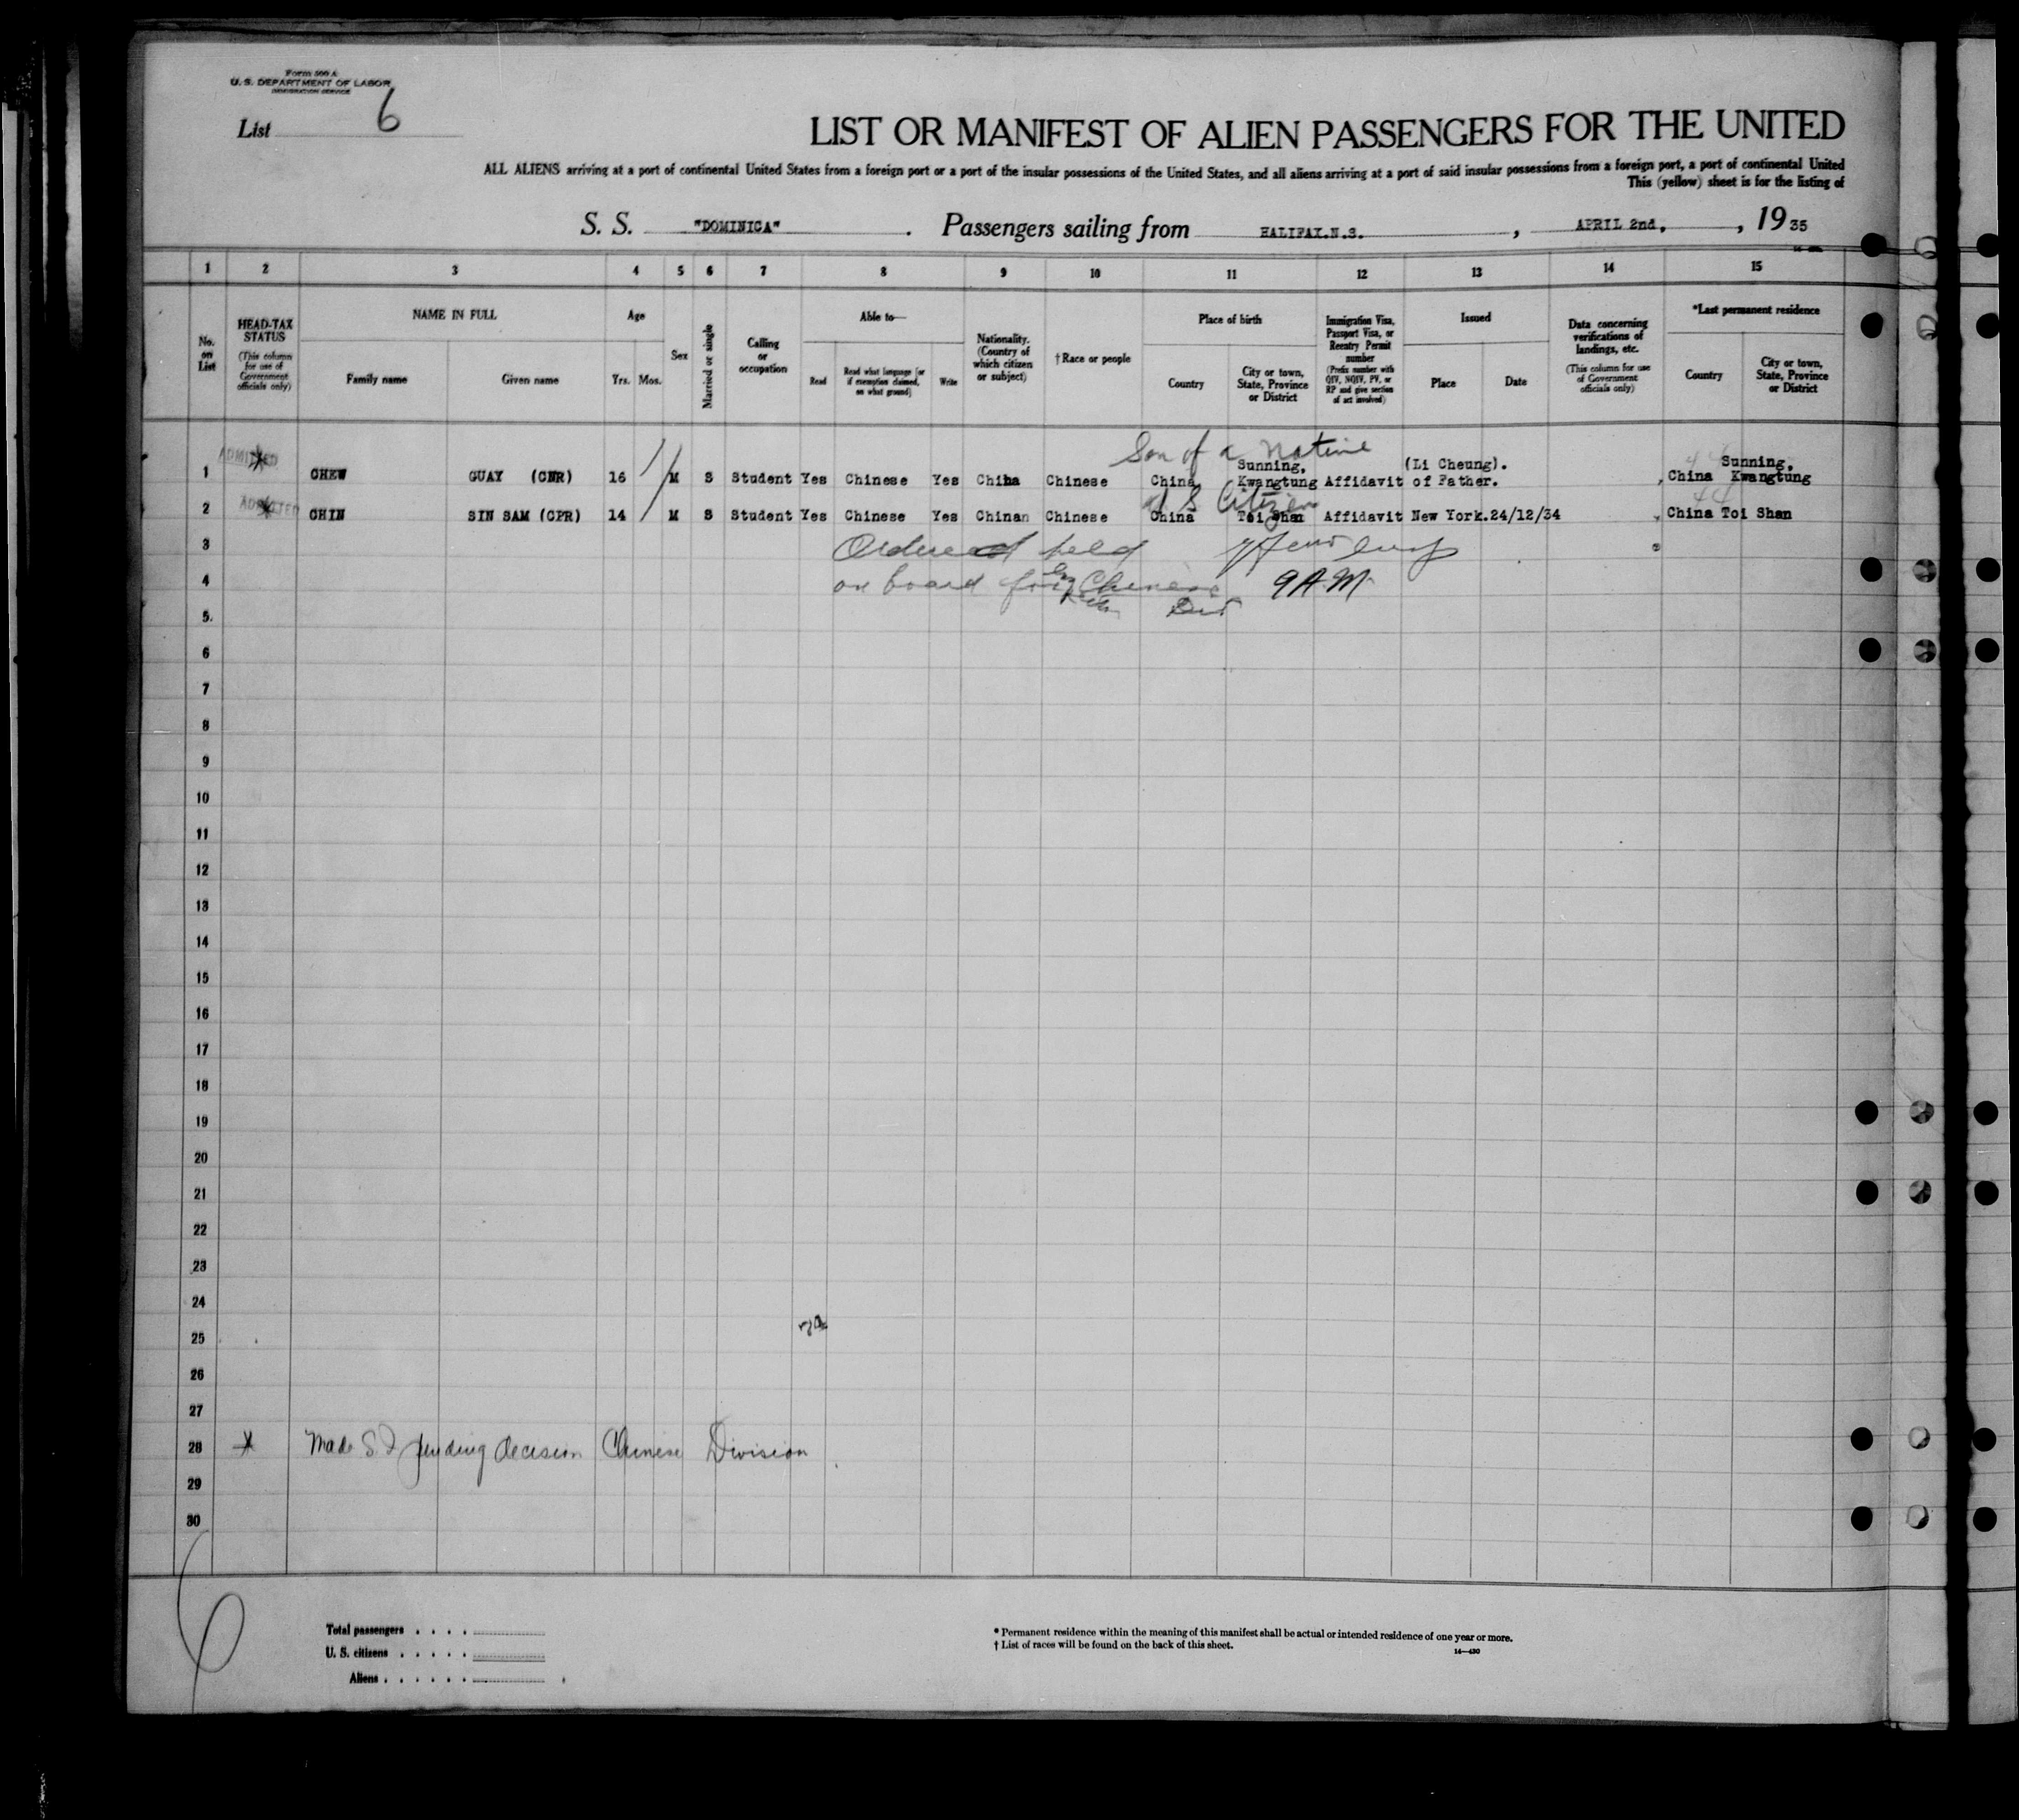 Form 500 A
U. S. DEPARTMENT OF LABOR
IMMIGRATION SERVICE
List 6
LIST OR MANIFEST OF ALIEN PASSENGERS FOR THE UNITED
ALL ALIENS arriving at a port of continental United States from a foreign port or a port of the insular possessions of the United States, and all aliens arriving at a port of said insular possessions from a foreign port, a port of continental United
This (yellow) sheet is for the listing of
S. S. "DOMINICA" . Passengers sailing from HALIFAX.N.S. , APRIL 2nd, , 19 35
1 2 3 4 5 6 7 8 9 10 11 12 13 14 15
No. on List
HEAD-TAX STATUS
(This column for use of Government officials only)
NAME IN FULL
Family name
Given name
Age
Yrs. Mos.
Sex
Married or single
Calling or occupation
Able to—
Read
Read what language [or if exemption claimed, on what ground]
Write
Nationality. (Country of which citizen or subject)
†Race or people
Place of birth
Country
City or town, State, Province or District
Immigration Visa, Passport Visa, or Reentry Permit number
(Prefix number with QIV, NQIV, PV, or RP and give section of act involved)
Issued
Place
Date
Data concerning verifications of landings, etc.
(This column for use of Government officials only)
*Last permanent residence
Country
City or town, State, Province or District
Son of a native
ADMITTED
Sunning, (Li Cheung). Sunning,
1 CHEW GUAY (CNR) 16 M S Student Yes Chinese Yes China Chinese China Kwangtung Affidavit of Father. China Kwangtung
U S Citizen
ADMITTED
2 CHIN SIN SAM (CPR) 14 M S Student Yes Chinese Yes Chinan Chinese China Toi Shan Affidavit New York.24/12/34 China Toi Shan
3 Ordered held
4 on board for Chinese 9 A.M.
5.
6
7
8
9
10
11
12
13
14
15
16
17
18
19
20
21
22
23
24
25
26
27
28 Made S I pending decision Chinese Division
29
30
Total passengers . . . .
U. S. citizens . . . . .
Aliens . . . . . .
* Permanent residence within the meaning of this manifest shall be actual or intended residence of one year or more.
† List of races will be found on the back of this sheet.
14—430